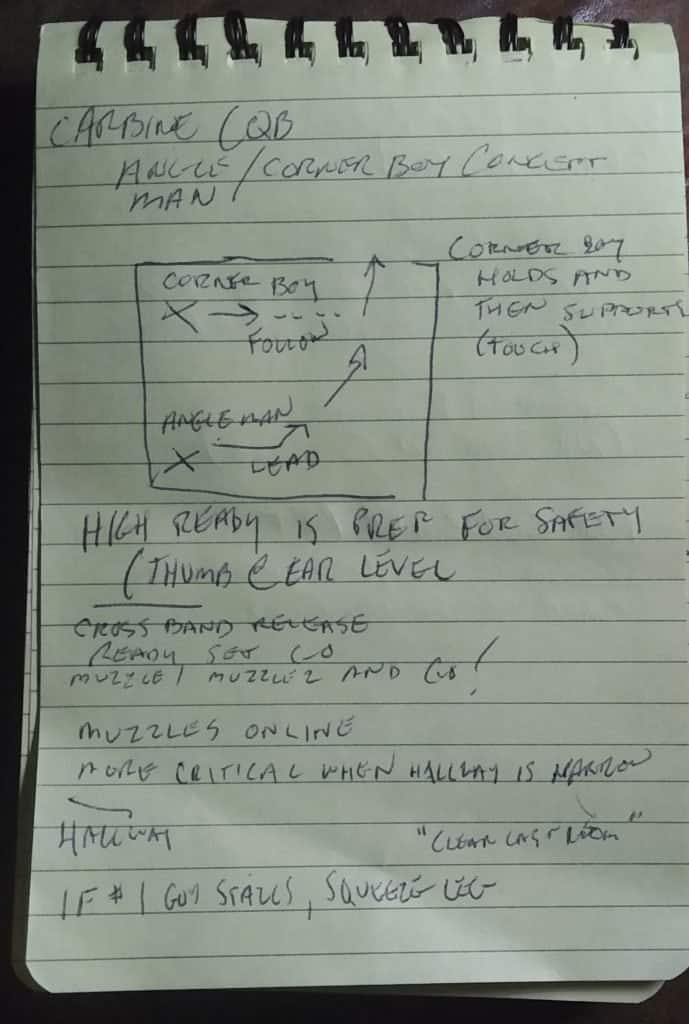 CARBINE CQB
ANGLE/CORNER BOY CONCEPT
MAN
CORNER BOY
HOLDS AND
THEN SUPPORTS
(TOUCH)
CORNER BOY
X
FOLLOW
ANGLE MAN
X LEAD
HIGH READY IS PREF FOR SAFETY
(THUMB @ EAR LEVEL
CROSS BAND RELEASE
READY SET GO
MUZZLE 1 MUZZLE 2 AND GO!
MUZZLES ONLINE
MORE CRITICAL WHEN HALLWAY IS NARROW
HALLWAY
"CLEAR LAST ROOM"
IF #1 GUY STALLS, SQUEEZE LEG